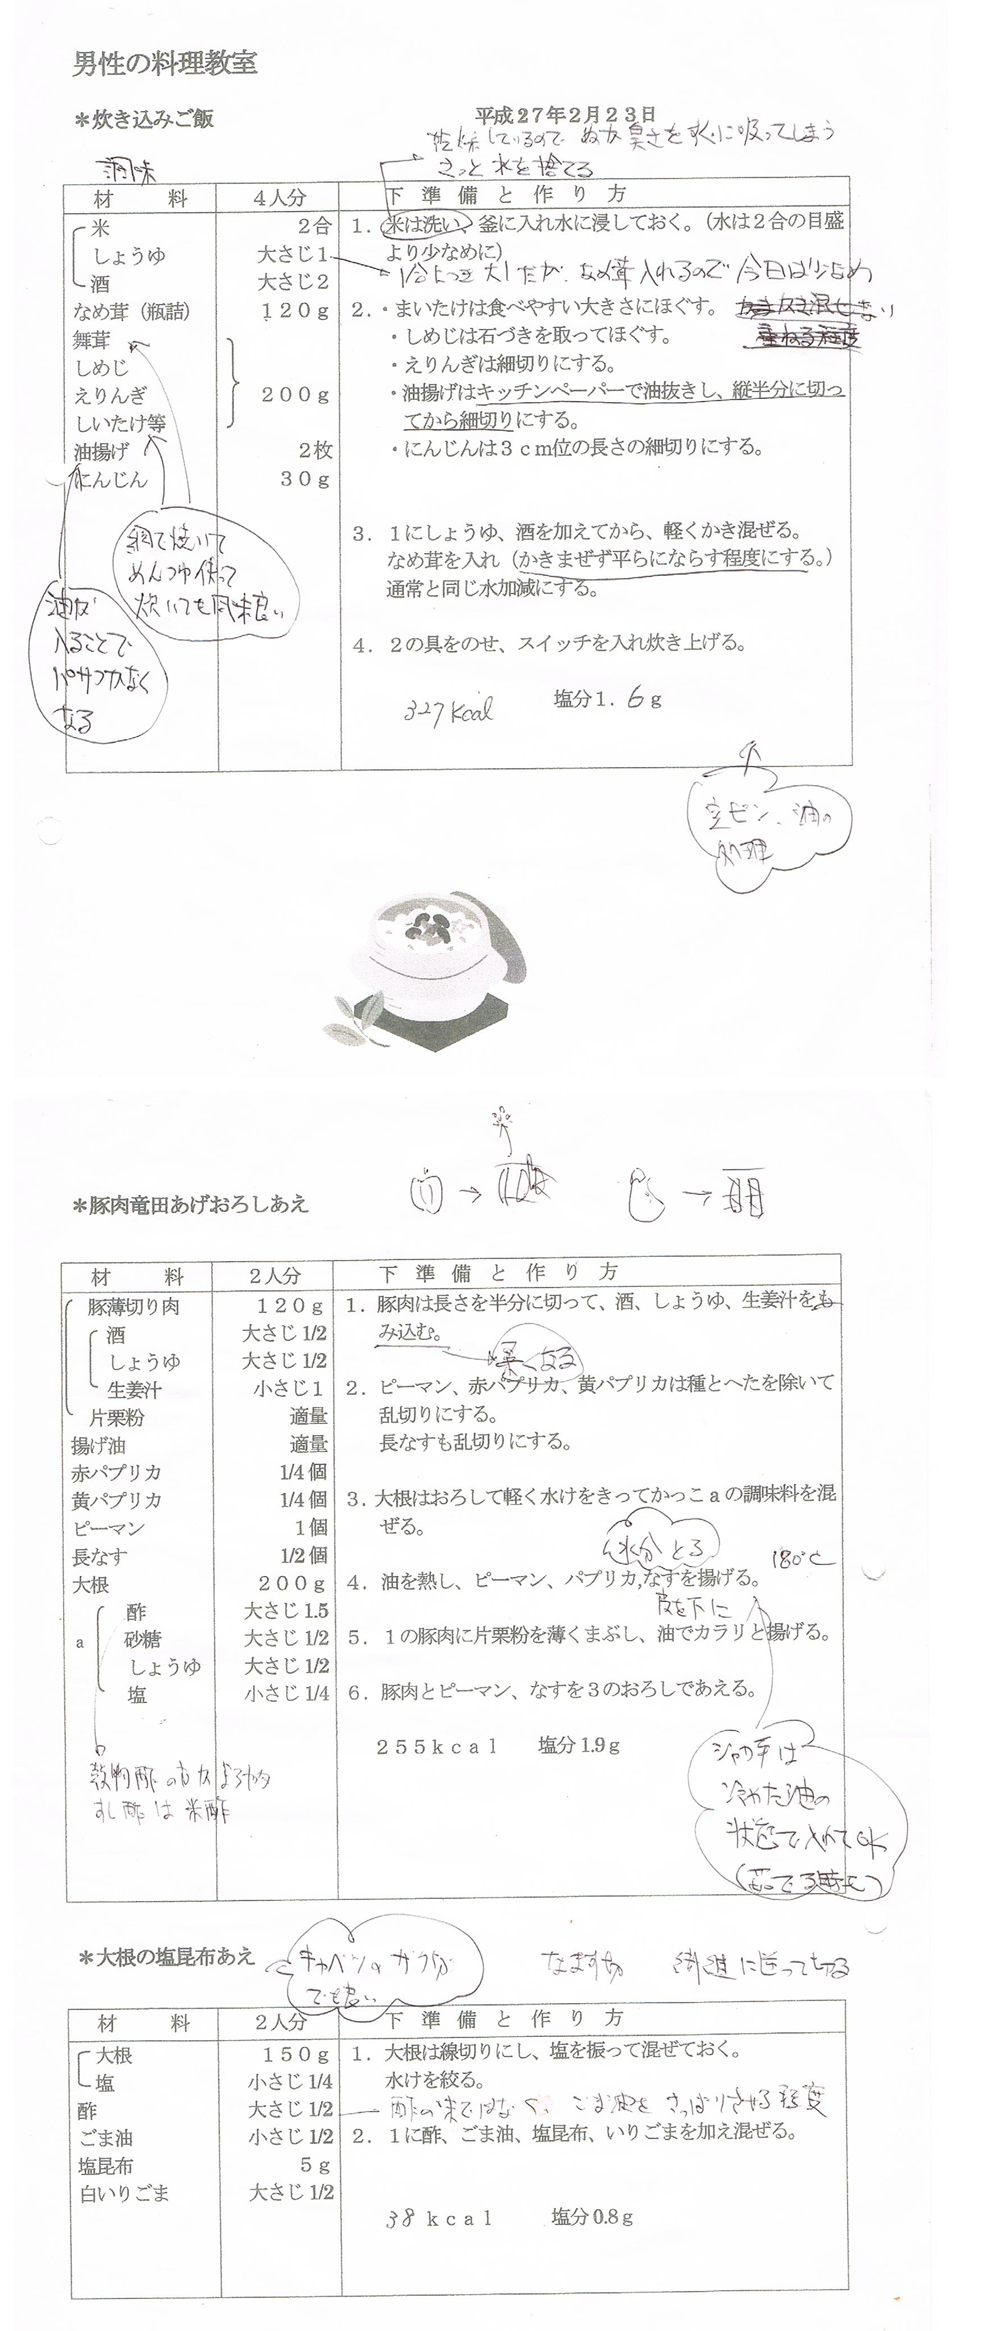 男性の料理教室
＊炊き込みご飯
平成27年2月23日
乾燥しているので ぬか臭さを すぐに吸ってしまう
さっと水を捨てる
調味
材　料　4人分　下準備と作り方
米　2合
しょうゆ　大さじ1
酒　大さじ2
なめ茸（瓶詰）　120g
舞茸
しめじ
えりんぎ　200g
しいたけ等
油揚げ　2枚
にんじん　30g
1．米は洗い、釜に入れ水に浸しておく。（水は2合の目盛
より少なめに）
1合につき大1だが、なめ茸入れるので 今日は少なめ
2．・まいたけは食べやすい大きさにほぐす。
かき混ぜない
重ねる程度
・しめじは石づきを取ってほぐす。
・えりんぎは細切りにする。
・油揚げはキッチンペーパーで油抜きし、縦半分に切っ
てから細切りにする。
・にんじんは3cm位の長さの細切りにする。
3．1にしょうゆ、酒を加えてから、軽くかき混ぜる。
なめ茸を入れ（かきまぜず平らにならす程度にする。）
通常と同じ水加減にする。
4．2の具をのせ、スイッチを入れ炊き上げる。
327kcal　塩分1．6g
網で焼いて
めんつゆ使って
炊いても風味良い
油が
入ることで
パサつかなく
なる
空ビン、油の
処理
＊豚肉竜田あげおろしあえ
材　料　2人分　下準備と作り方
豚薄切り肉　120g
酒　大さじ1/2
しょうゆ　大さじ1/2
生姜汁　小さじ1
片栗粉　適量
揚げ油　適量
赤パプリカ　1/4個
黄パプリカ　1/4個
ピーマン　1個
長なす　1/2個
大根　200g
a
酢　大さじ1.5
砂糖　大さじ1/2
しょうゆ　大さじ1/2
塩　小さじ1/4
1．豚肉は長さを半分に切って、酒、しょうゆ、生姜汁をも
み込む。
柔くなる
2．ピーマン、赤パプリカ、黄パプリカは種とへたを除いて
乱切りにする。
長なすも乱切りにする。
3．大根はおろして軽く水けをきってかっこaの調味料を混
ぜる。
水分とる
180℃
4．油を熱し、ピーマン、パプリカ,なすを揚げる。
皮を下に
5．1の豚肉に片栗粉を薄くまぶし、油でカラリと揚げる。
6．豚肉とピーマン、なすを3のおろしであえる。
255kcal　塩分1.9g
穀物酢の方が
すし酢は米酢
ジャガ芋は
冷めた油の
状態で入れてOK
＊大根の塩昆布あえ
キャベツの
でも良い
繊維に沿って切る
材　料　2人分　下準備と作り方
大根　150g
塩　小さじ1/4
酢　大さじ1/2
ごま油　小さじ1/2
塩昆布　5g
白いりごま　大さじ1/2
1．大根は線切りにし、塩を振って混ぜておく。
水けを絞る。
酢の味ではなく ごま油を さっぱりさせる程度
2．1に酢、ごま油、塩昆布、いりごまを加え混ぜる。
38 kcal　塩分0.8g